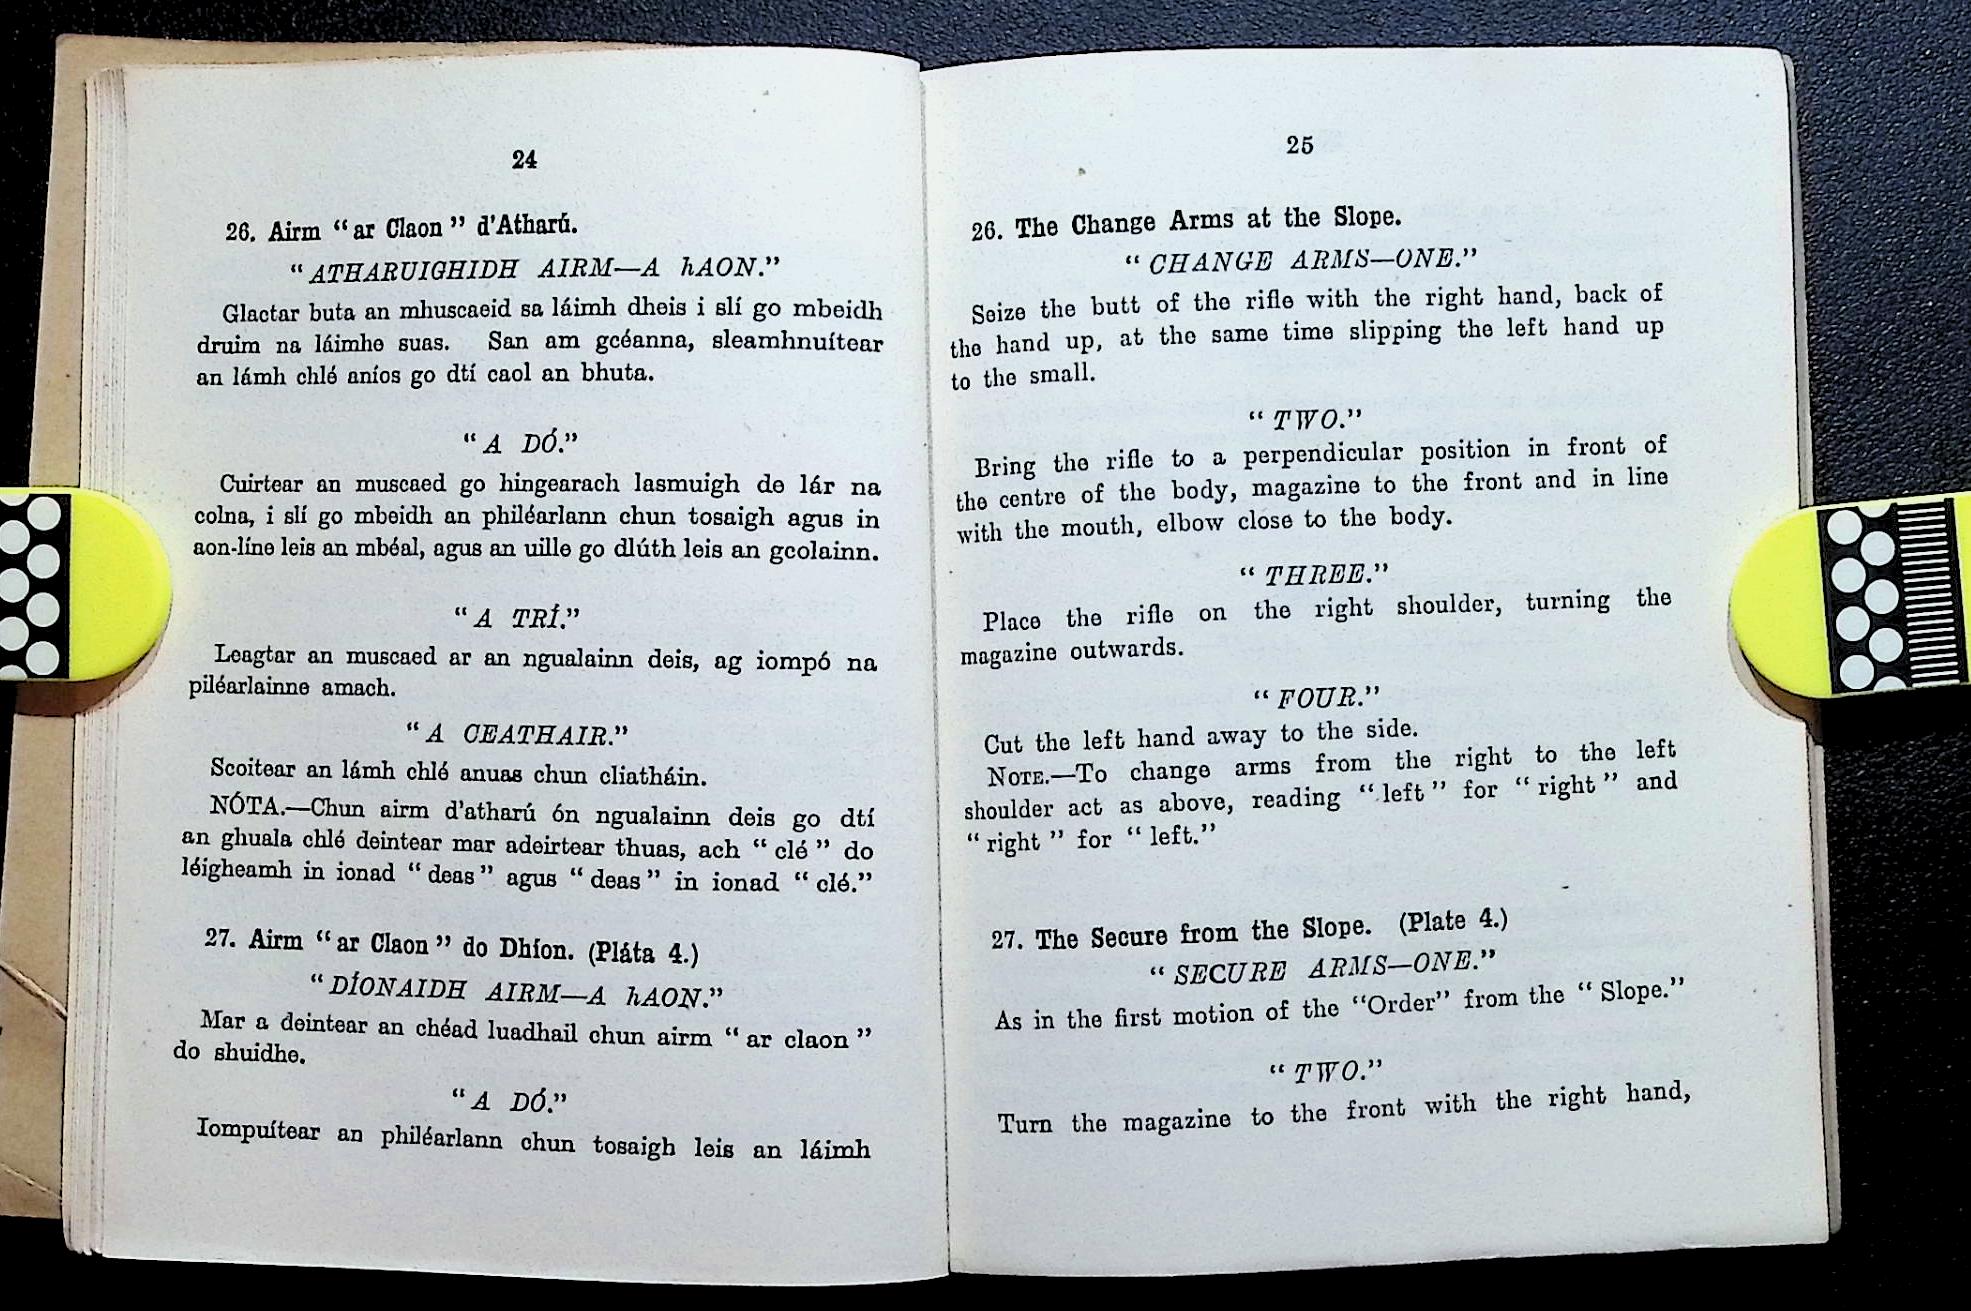 24
26. Airm “ ar Claon ” d'Atharú.
“ ATHARUIGHIDH AIRM—A hAON.”
Glactar buta an mhuscaeid sa láimh dheis i slí go mbeidh
druim na láimhe suas. San am gcéanna, sleamhnuítear
an lámh chlé aníos go dtí caol an bhuta.
“ A DÓ.”
Cuirtear an muscaed go hingearach lasmuigh de lár na
colna, i slí go mbeidh an philéarlann chun tosaigh agus in
aon-líne leis an mbéal, agus an uille go dlúth leis an gcolainn.
“ A TRÍ.”
Leagtar an muscaed ar an ngualainn deis, ag iompó na
piléarlainne amach.
“ A CEATHAIR.”
Scoitear an lámh chlé anuas chun cliatháin.
NÓTA.—Chun airm d'atharú ón ngualainn deis go dtí
an ghuala chlé deintear mar adeirtear thuas, ach “ clé ” do
léigheamh in ionad “ deas ” agus “ deas ” in ionad “ clé.”
27. Airm “ ar Claon ” do Dhíon. (Pláta 4.)
“ DÍONAIDH AIRM—A hAON.”
Mar a deintear an chéad luadhail chun airm “ ar claon ”
do shuidhe.
“ A DÓ.”
Iompuítear an philéarlann chun tosaigh leis an láimh
25
26. The Change Arms at the Slope.
“ CHANGE ARMS—ONE.”
Seize the butt of the rifle with the right hand, back of
the hand up, at the same time slipping the left hand up
to the small.
“ TWO.”
Bring the rifle to a perpendicular position in front of
the centre of the body, magazine to the front and in line
with the mouth, elbow close to the body.
“ THREE.”
Place the rifle on the right shoulder, turning the
magazine outwards.
“ FOUR.”
Cut the left hand away to the side.
NOTE.—To change arms from the right to the left
shoulder act as above, reading “ left ” for “ right ” and
“ right ” for “ left.”
27. The Secure from the Slope. (Plate 4.)
“ SECURE ARMS—ONE.”
As in the first motion of the “Order” from the “ Slope.”
“ TWO.”
Turn the magazine to the front with the right hand,